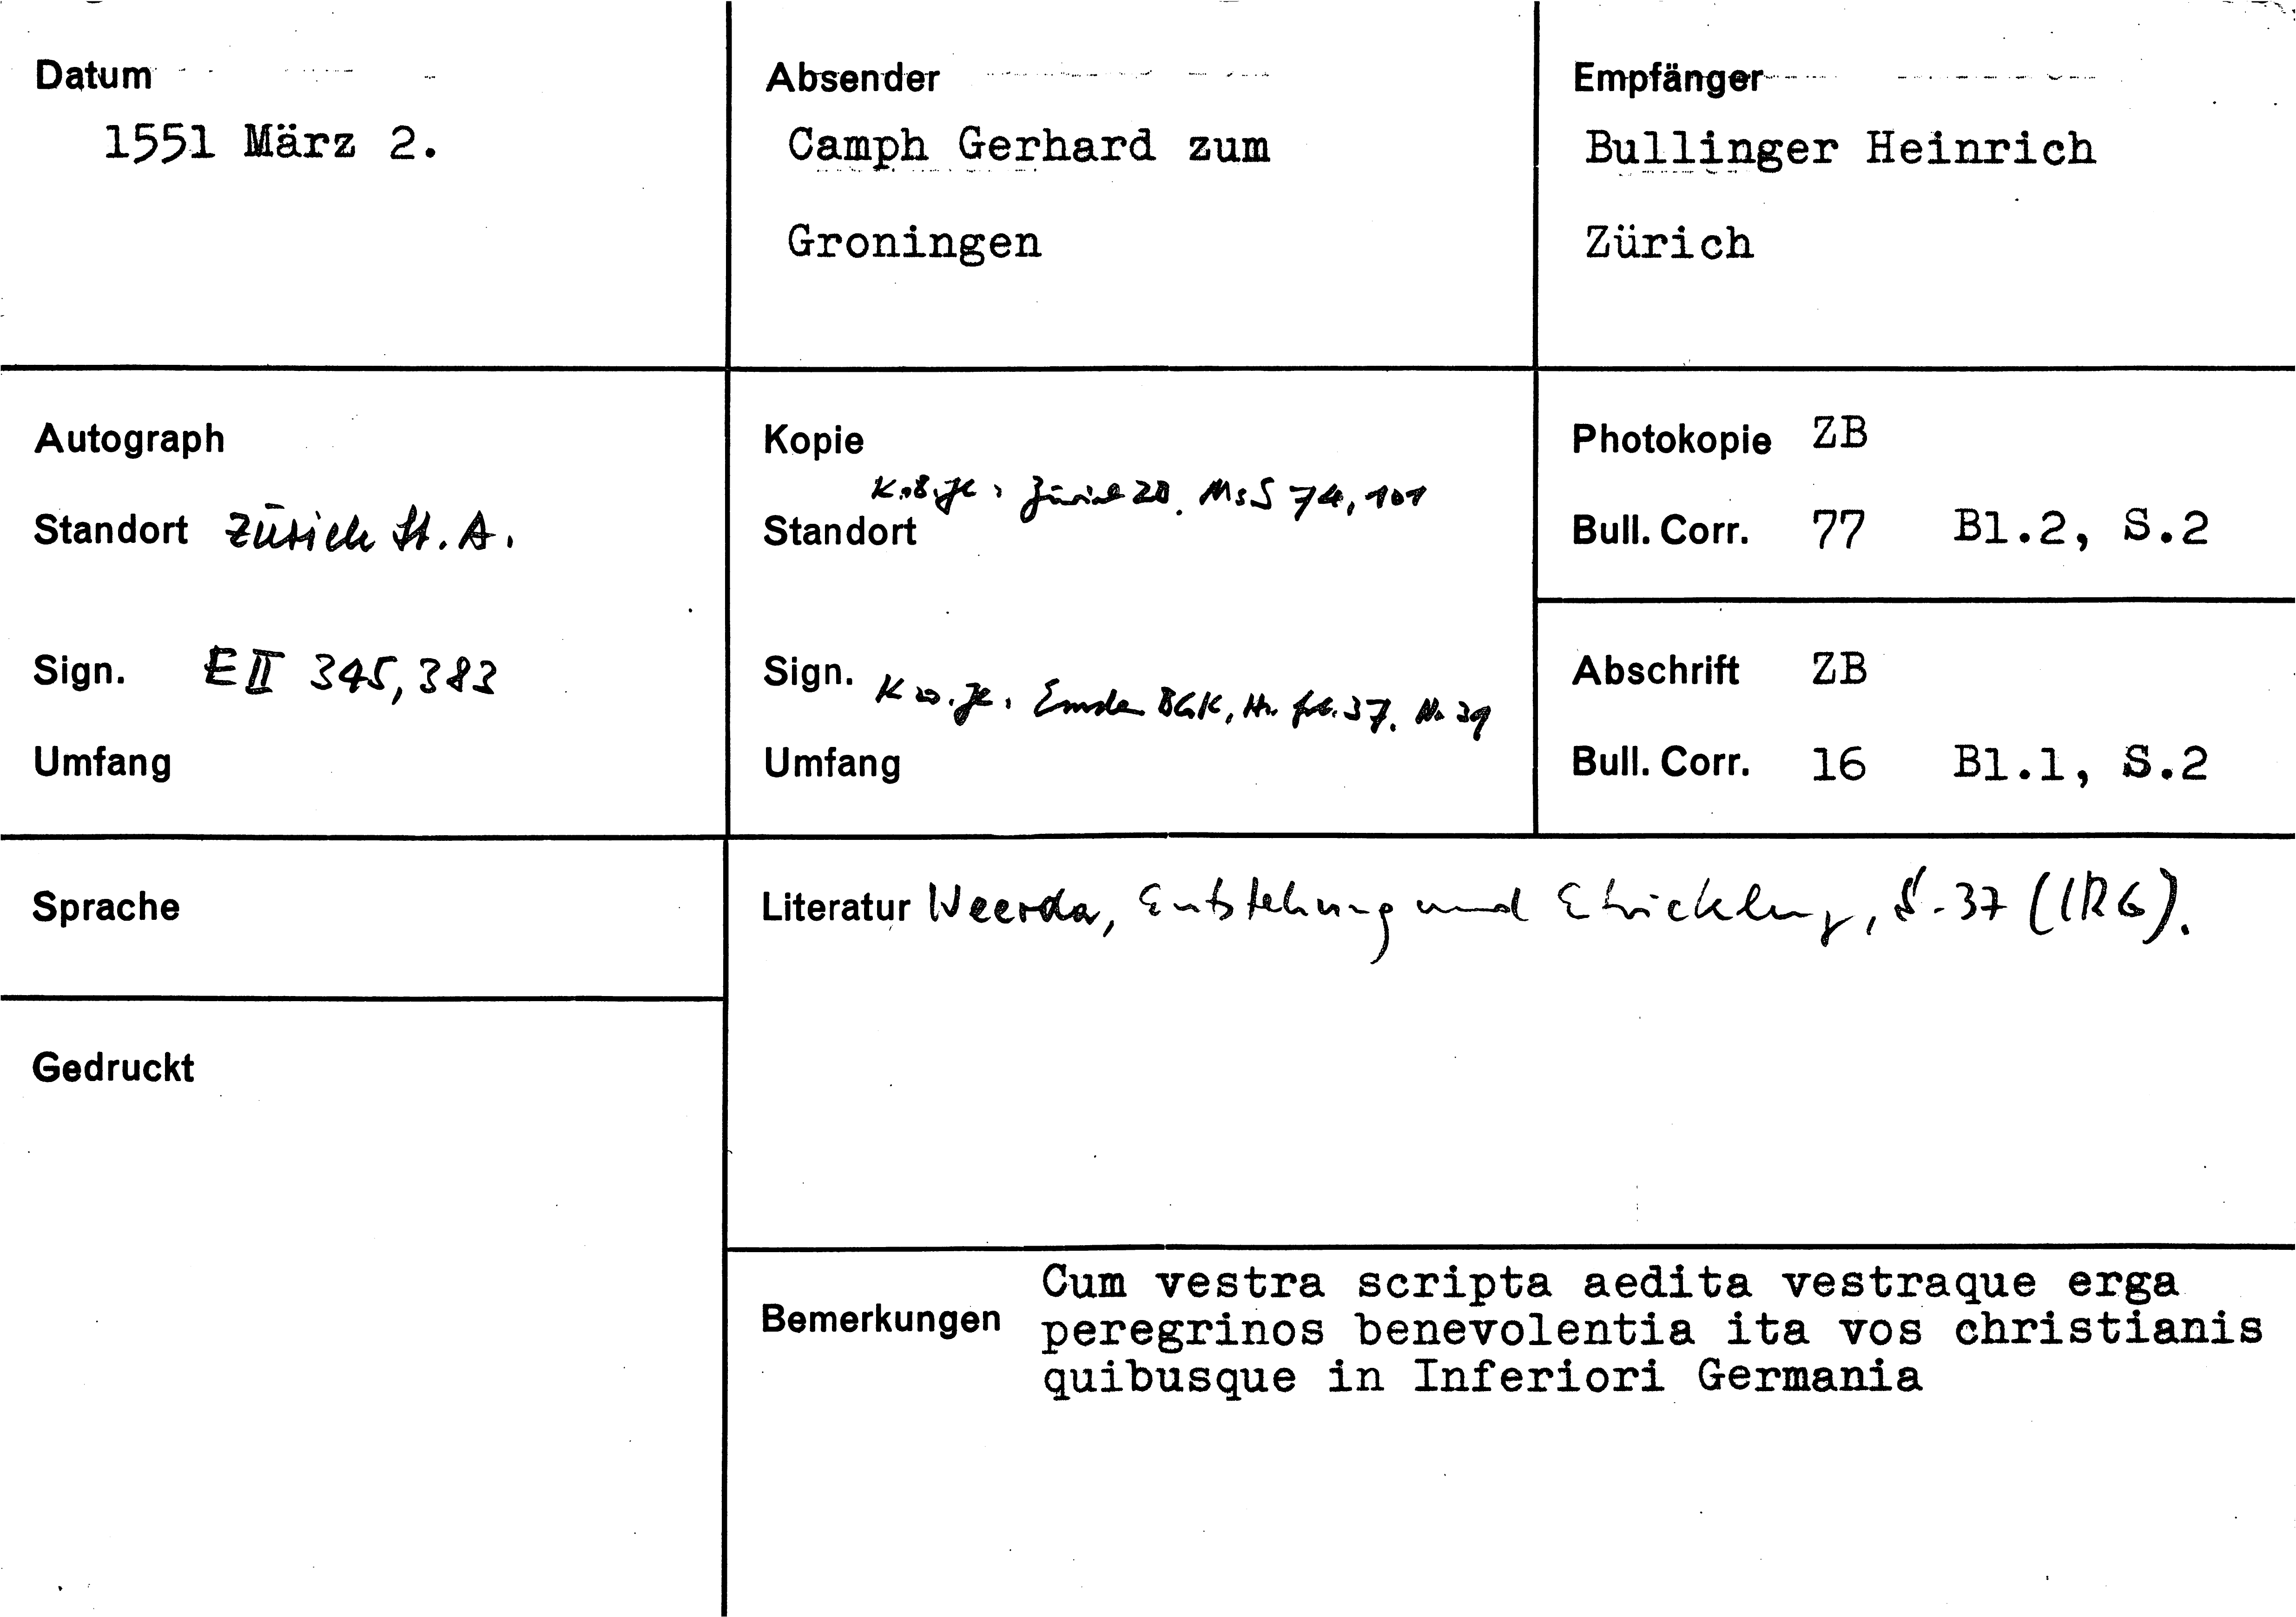 Datum
1551 März 2.
Absender
Camph Gerhard zum
Groningen
Empfänger
Bullinger Heinrich
Zürich
Autograph
Standort Zürich St. A.
Sign. E II 345, 383
Umfang
Kopie
K. 18. Jh. Zürich ZB. Ms S 74, 101
Standort
Sign. K 20. Jh. Emden BGK, Hs. fol. 37. No 39
Umfang
Photokopie ZB
Bull. Corr. 77 Bl.2, S.2
Abschrift ZB
Bull. Corr. 16 Bl.1, S.2
Sprache
Literatur Weerda, Entstehung und S. 37 (IRG).
Gedruckt
Bemerkungen
Cum vestra scripta aedita vestraque erga
peregrinos benevolentia ita vos christianis
quibusque in Inferiori Germania